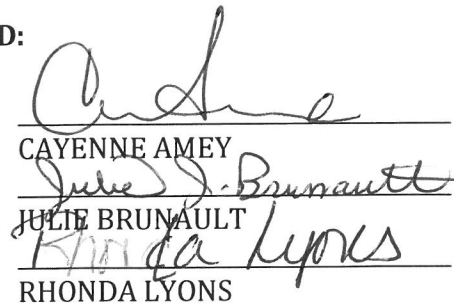 D:
CAYENNE AMEY
Julie J. Brunault
JULIE BRUNAULT
Rhonda Lyons
RHONDA LYONS